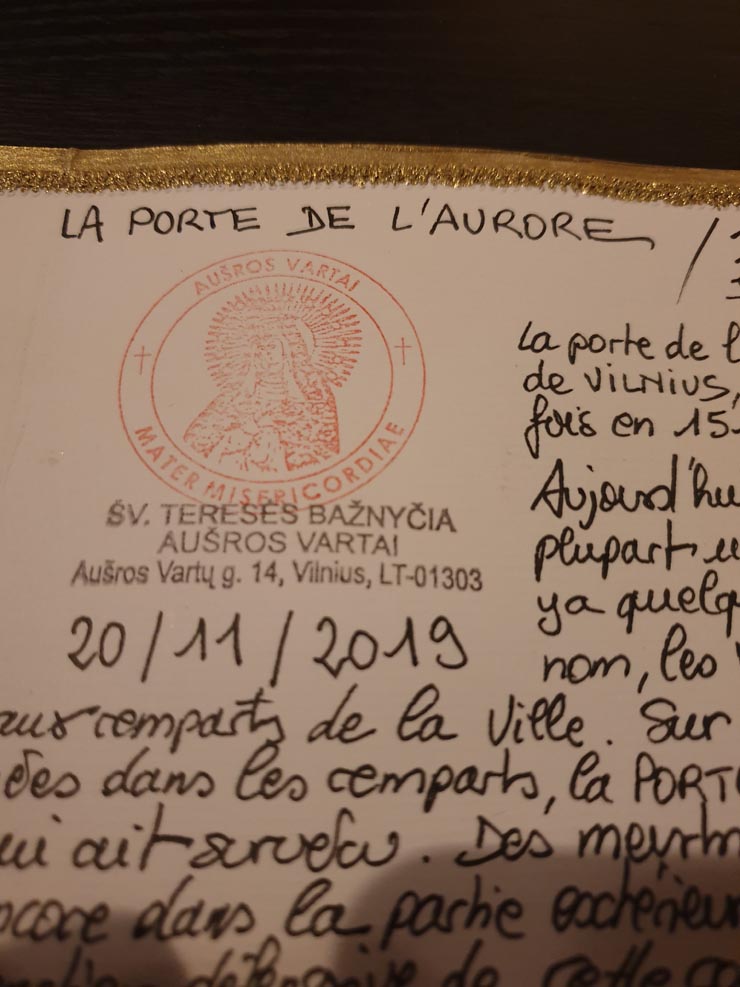 LA PORTE DE L'AURORE /
AUŠROS VARTAI
MATER MISERICORDIAE
ŠV. TERESĖS BAŽNYČIA
AUŠROS VARTAI
Aušros Vartų g. 14, Vilnius, LT-01303
20/11/2019
La porte de l
de VILNIUS,
fois en 15
Aujourd'hu
plupart
ya quelq
nom, les
aux remparts de la Ville. Sur
ées dans les remparts, la PORT
ui ait survécu. Des meurtr
ncore dans la partie extérieur
défensive de cette